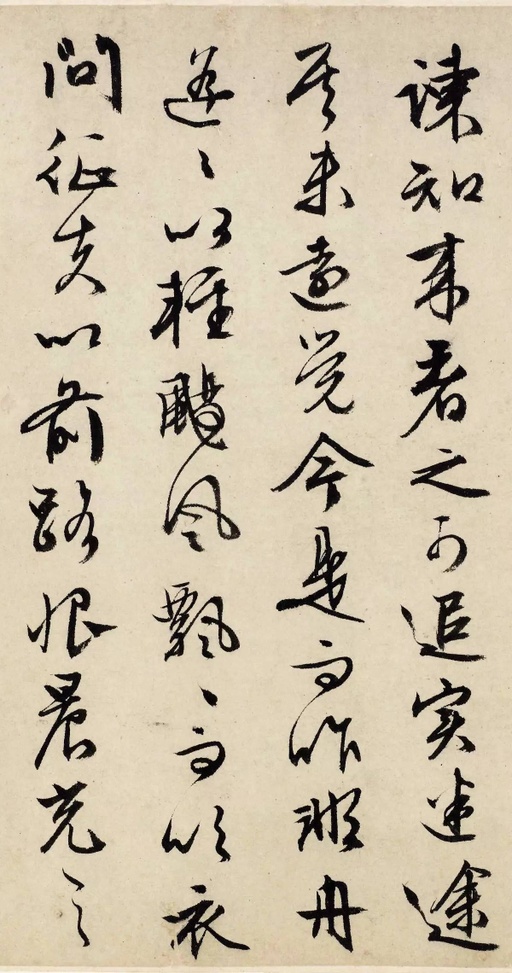 諫知来者之可追實迷途
其未遠覺今是而昨非舟
遥々以輕颺風飄々而吹衣
問征夫以前路恨晨光之